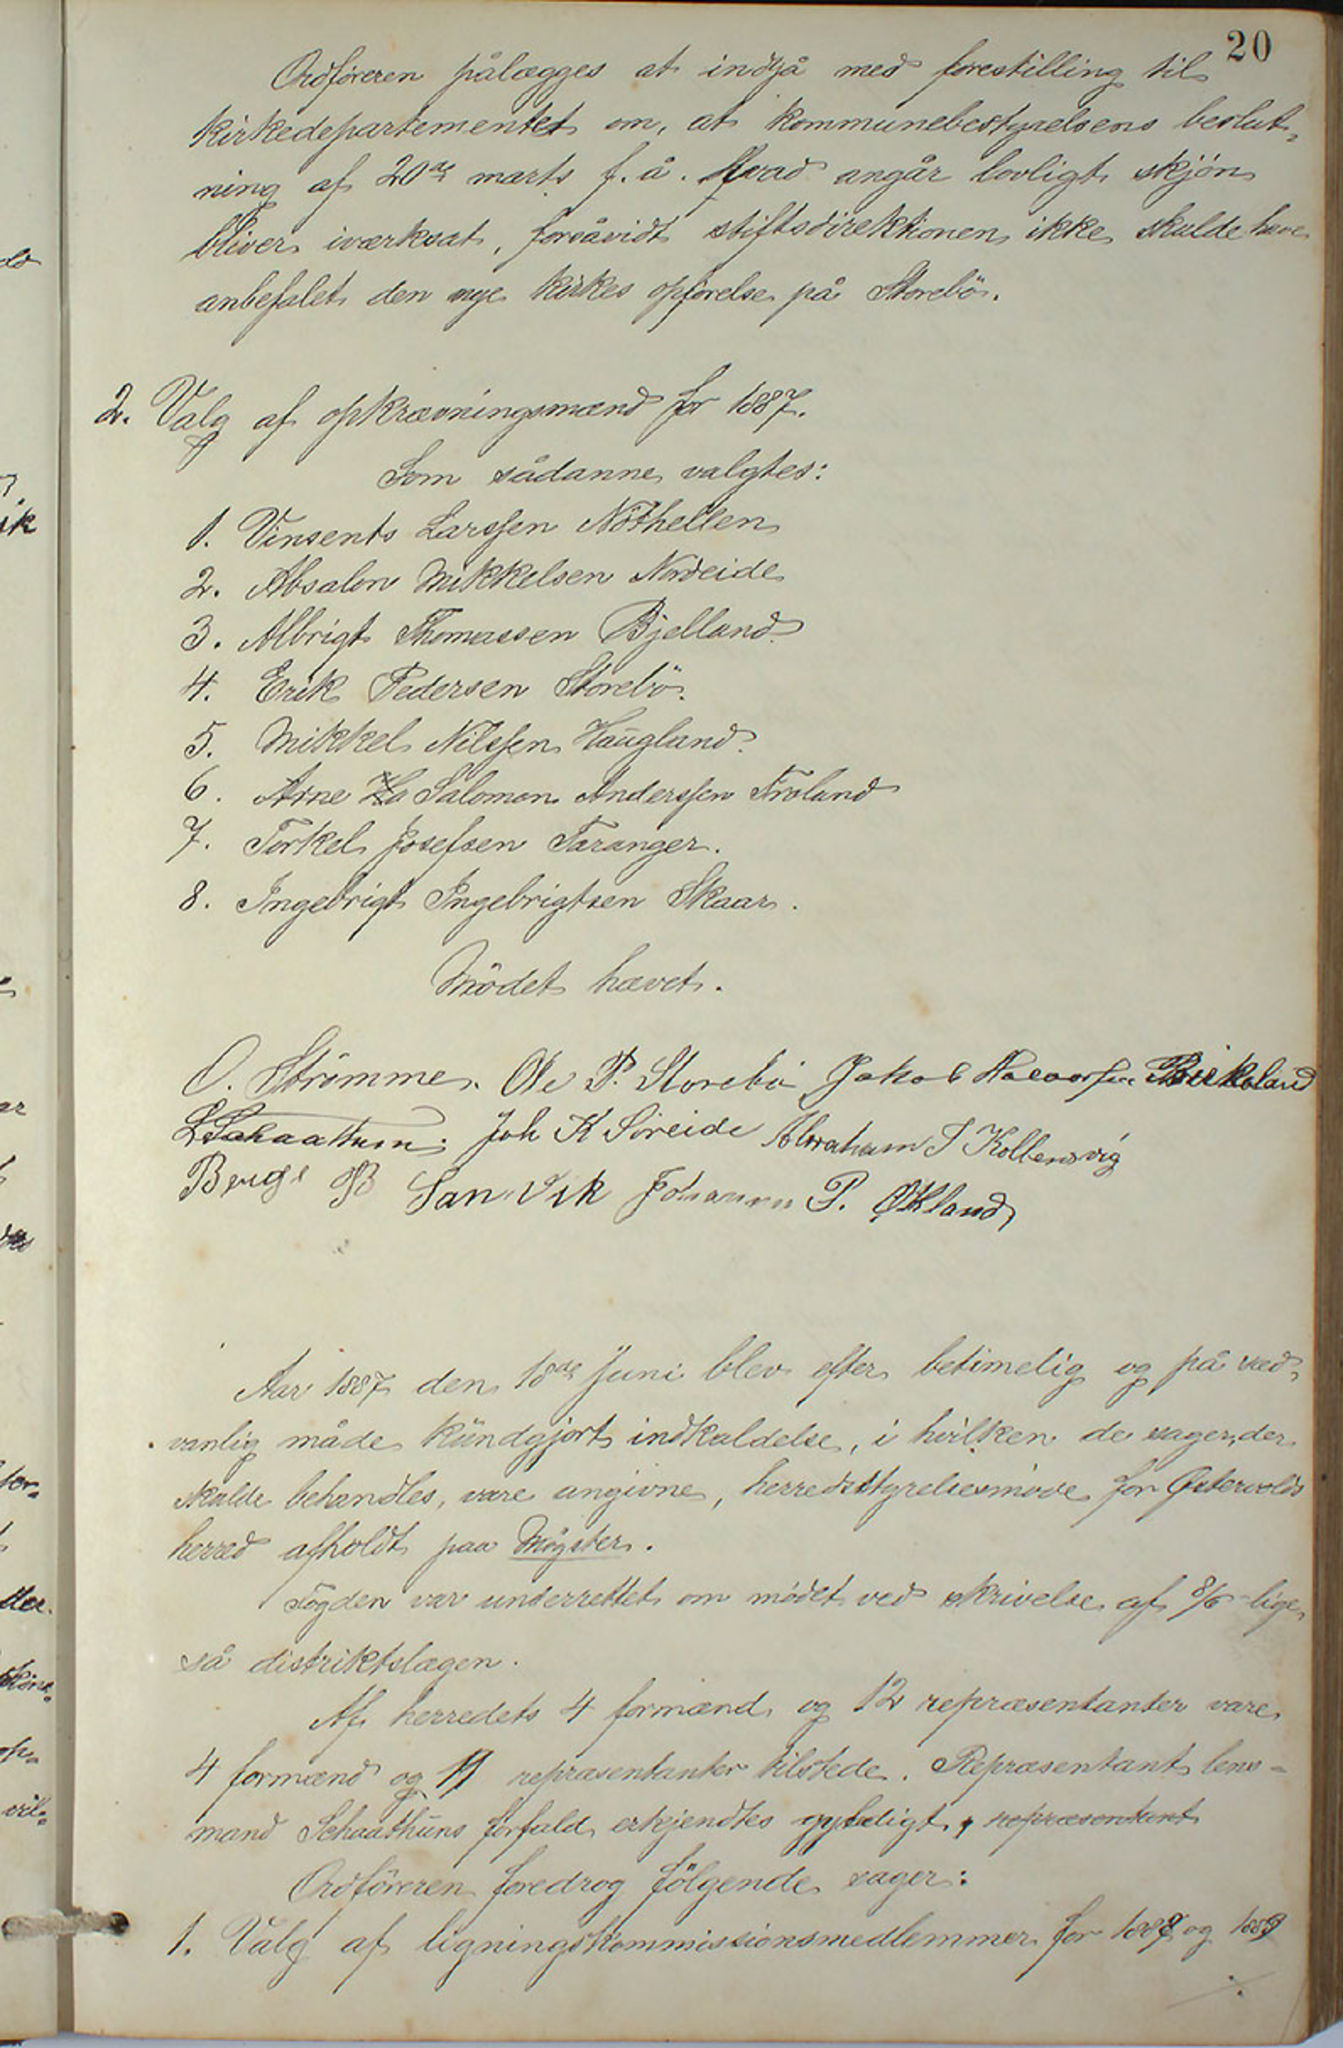 20
Ordføreren pålægges at indgå med forestilling til
kirkedepartementet om, at kommunebestyrelsens beslut-
ning af 20de marts f.å. hvad angår lovligt skjön
bliver iværksat, forsåvidt stiftsdirektionen ikke skulde have
anbefalet den nye kirkes opförelse på Storebö.
2. Valg af opkrævningsmænd for 1887.
Som sådanne valgtes:
1. Vinsents Larssen Nöthellen
2. Absalon Mikkelsen Nordeide
3. Albrigt Thomassen Bjelland.
4. Erik Pedersen Storebö.
5. Mikkel Nilssen Haugland.
6. Arne Salomon Anderssen Fröland
7. Torkel Josefsen Taranger.
8. Ingebrigt Ingebrigtsen Skaar.
Mödet hævet.
O. Strömme. Ole P. Storebö Jakob Halvorsen Birkeland
L Schaathun. Joh K Söreide Abraham J Kolbensvig
Berge B Sanvik Johannes P. Økland
Aar 1887 den 18de Juni blev efter betimelig og på sed-
vanlig måde kundgjort indkaldelse, i hvilken de sager, der
skulde behandles, vare angivne, herredsstyrelsesmöde for Østervolds
herred afholdt paa Møgster.
Fogden var underrettet om mödet ved skrivelse af 8/6 lige-
så distriktslægen.
Af herredets 4 formænd og 12 repræsentanter vare
4 formænd og 11 repræsentanter tilstede. Repræsentant lens-
mand Schaathuns forfald erkjendtes gyldigt, repræsentant
Ordföreren foredrog fölgende sager:
1. Valg af ligningskommissionsmedlemmer for 1888 og 1889
./.